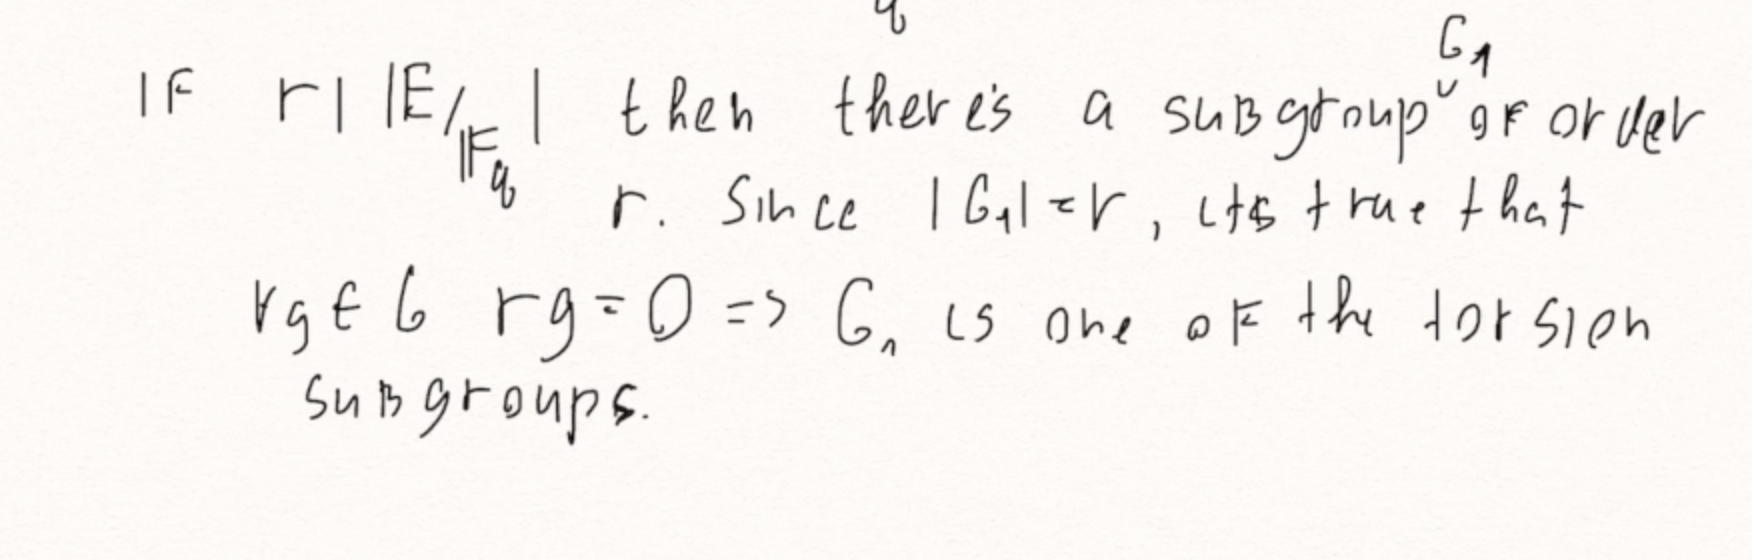 q
IF r | |E/𝔽q| then there's a subgroup G₁ of order
r. Since |G₁| = r, its true that
∀g ∈ G rg = O => G₁ is one of the torsion
subgroups.